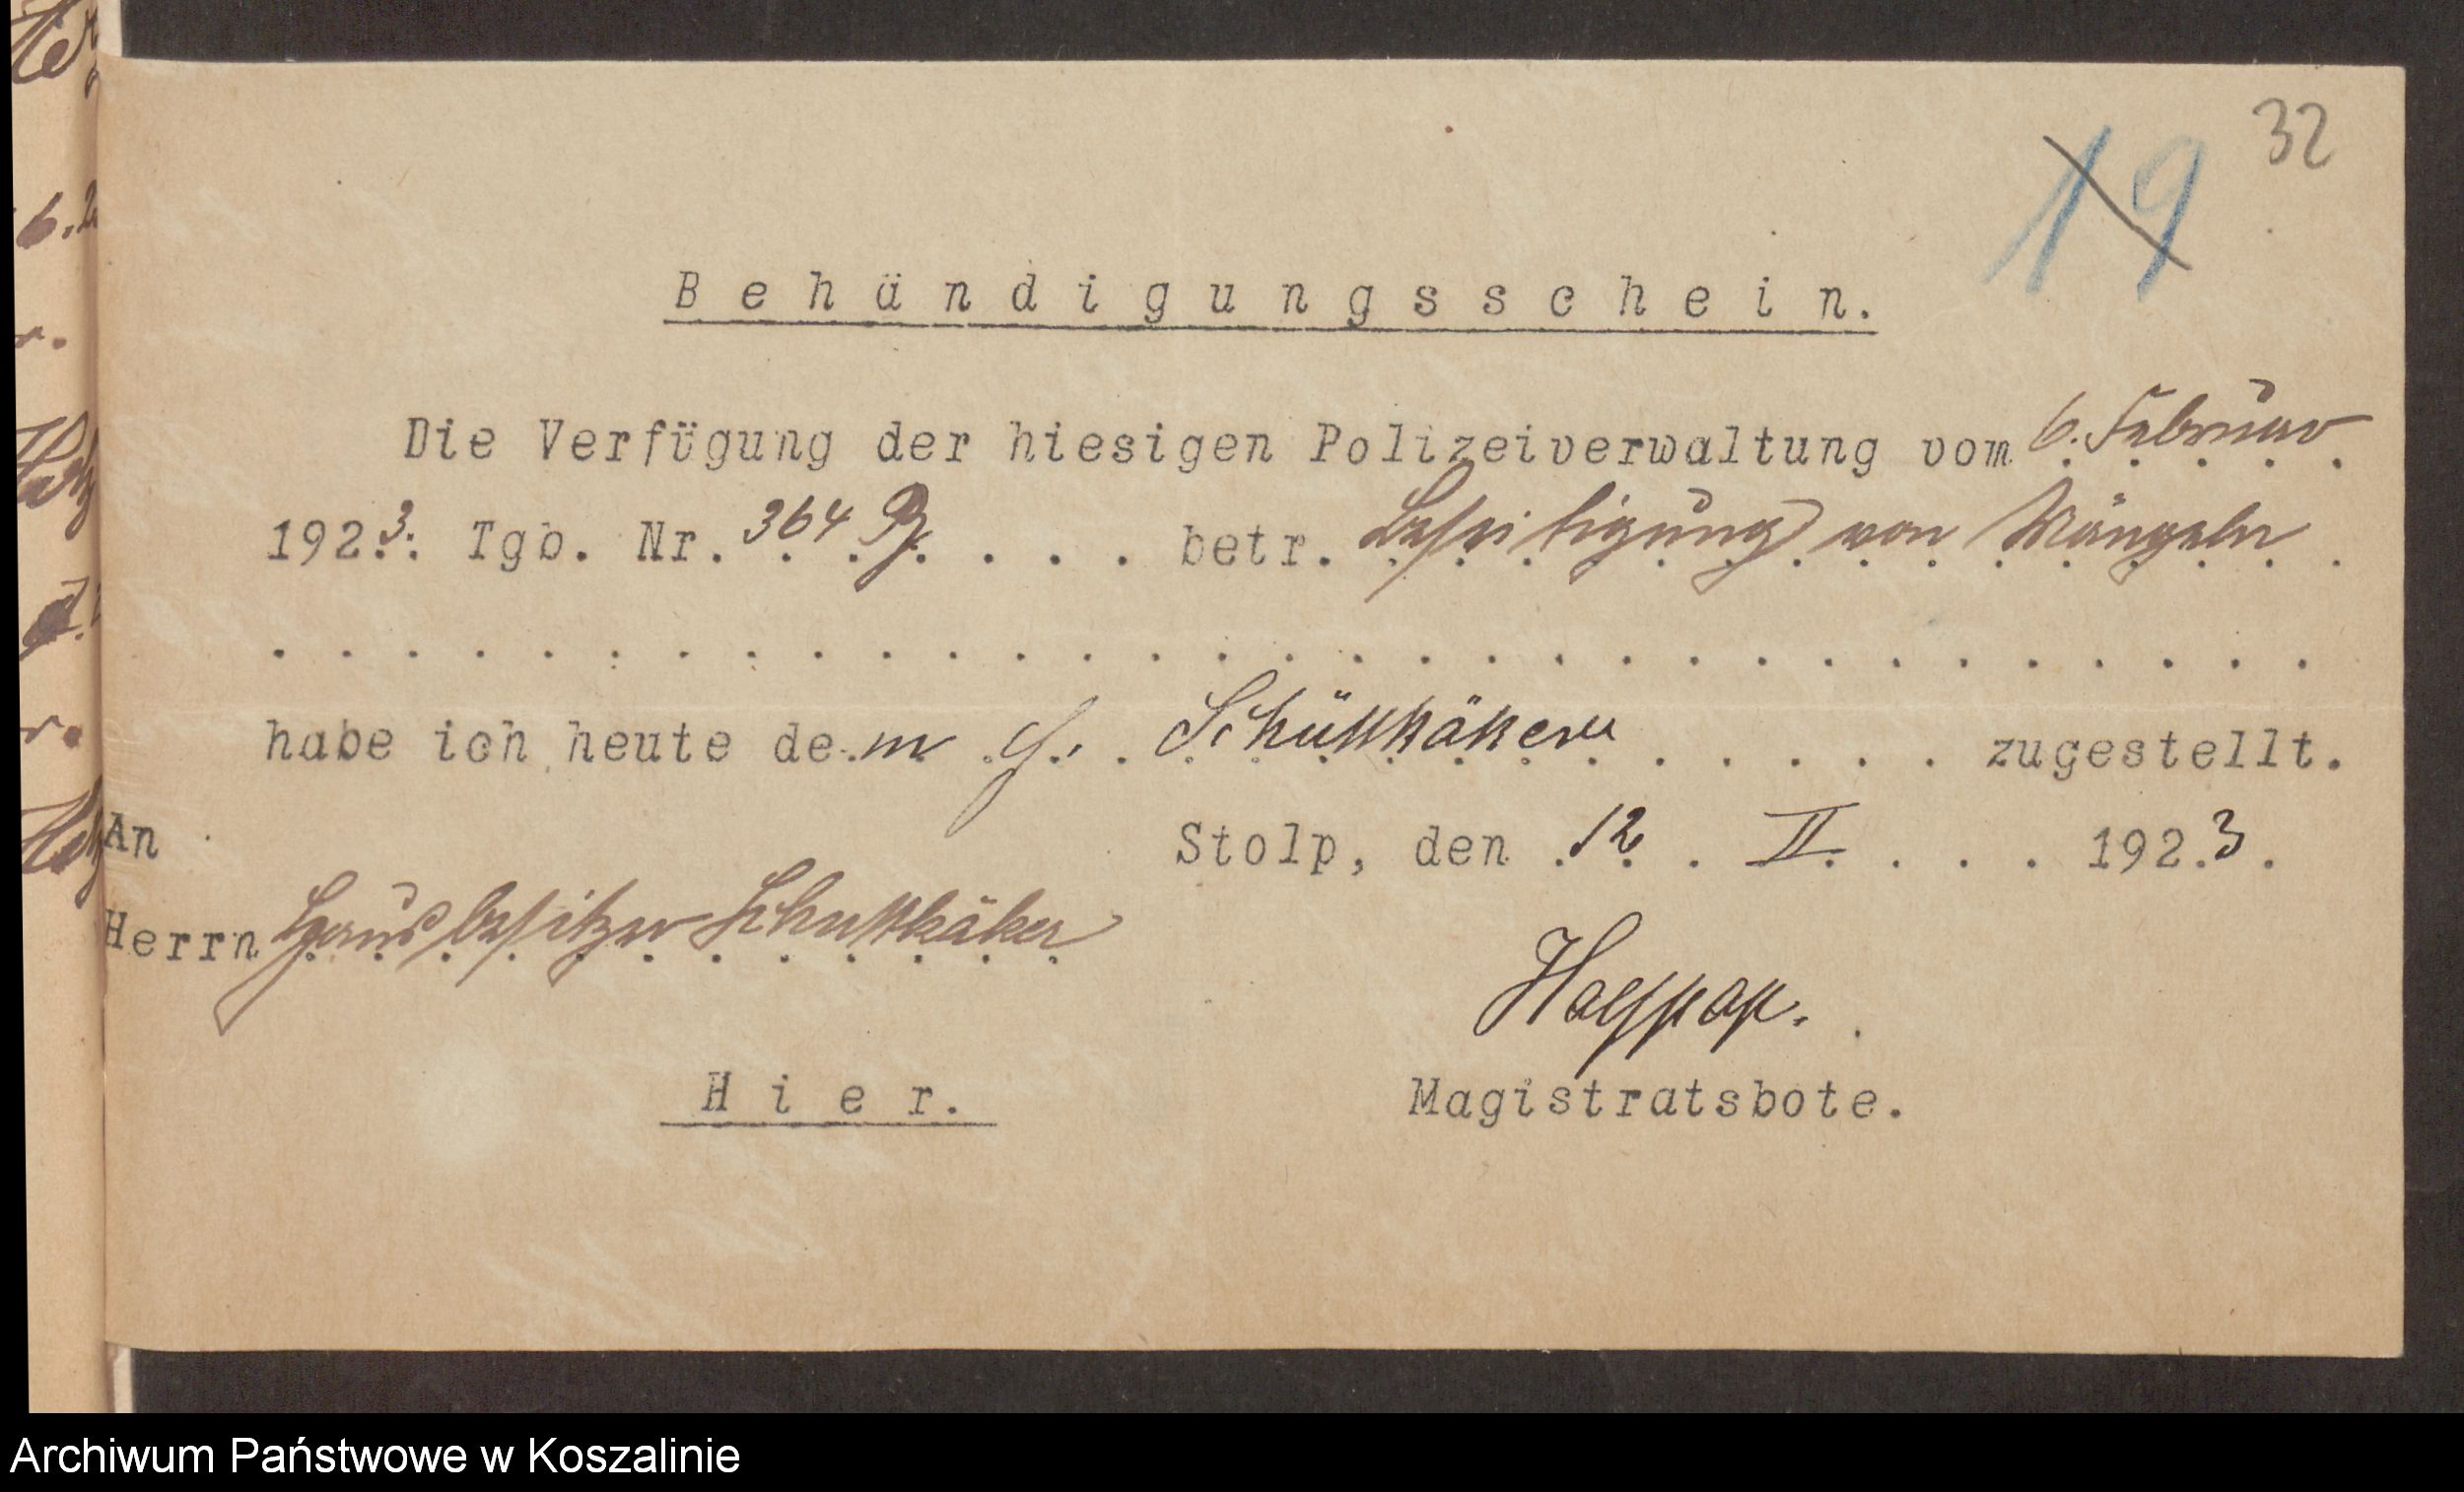 32
19
Behändigungsschein.
Die Verfügung der hiesigen Polizeiverwaltung vom 6. Februar
1923. Tgb. Nr. 364 betr. Beseitigung von Mängeln
habe ich heute dem H. Schüttkäker zugestellt.
An
Stolp, den 12. II. 1923.
Herrn Hausbesitzer Schuttkäker
Hier.
Magistratsbote.
Archiwum Państwowe w Koszalinie